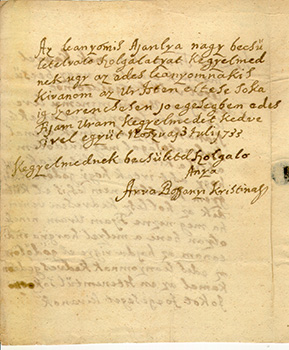 Az leanyomis Ajanlya nagy becsü
letel valo Szolgalatyat Kegyelmed
nek ugy az edes leanyomnakis
Kivanom az Ur Isten eltese soka
ig szerencsesen jo egesegben edes
Fiam Uram Kegyelmedet kedve
sivel együt 3 Juli 1733
Kegyelmednek becsülettel Szolgalo
Anya
Anna Kristina